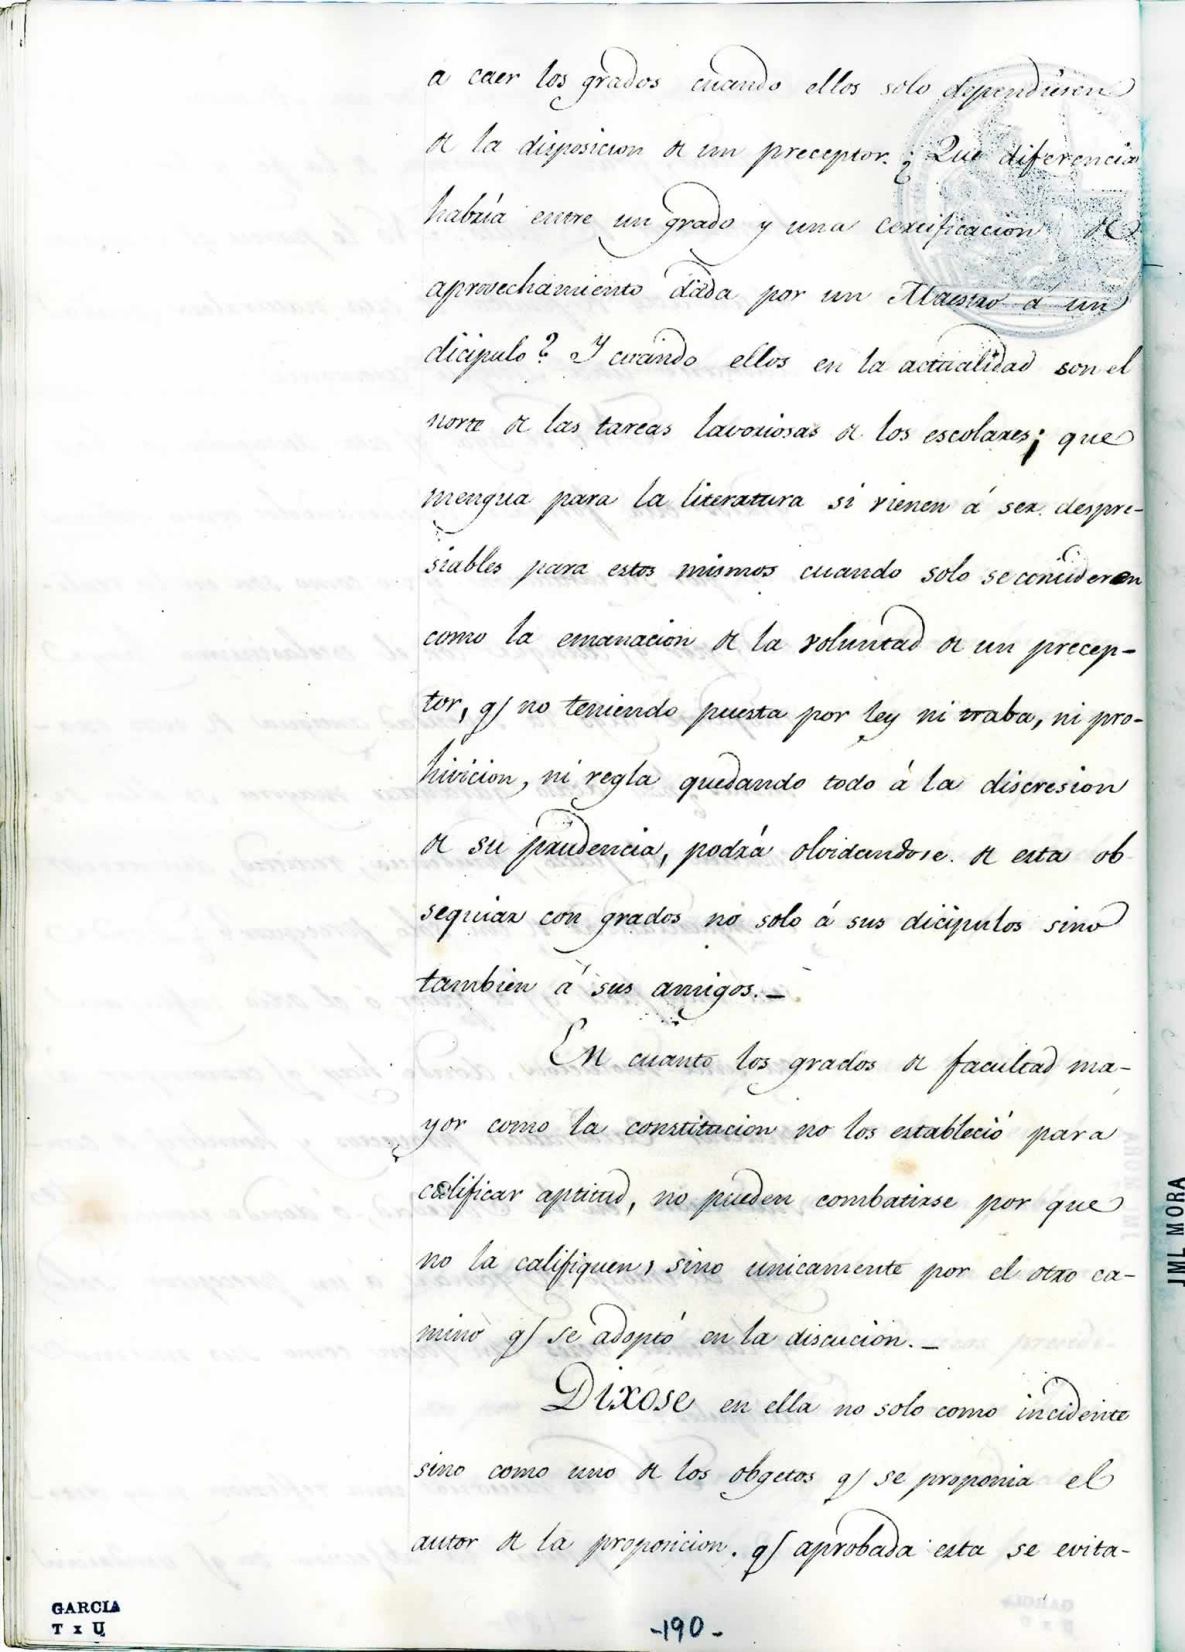 a caer los grados cuando ellos solo dependiesen
de la disposicion de un preceptor. ¿Que diferencia
habria entre un grado y una certificacion de
aprovechamiento dada por un Maestro á un
dicipulo? Y cuando ellos en la actualidad son el
norte de las tareas lavoriosas de los escolares; que
mengua para la literatura si vienen á ser despre-
siables para estos mismos cuando solo se consideren
como la emanacion de la voluntad de un precep-
tor, q/ no teniendo puesta por ley ni traba, ni pro-
hivicion, ni regla quedando todo á la discresion
de su prudencia, podrá olvidandose de esta ob
sequiar con grados no solo á sus dicipulos sino
tambien á sus amigos. _
En cuanto los grados de facultad ma-
yor como la constitucion no los estableció para
calificar aptitud, no pueden combatirse por que
no la califiquen, sino unicamente por el otro ca-
mino q/ se adoptó en la discucion. _
Dixose en ella no solo como incidente
sino como uno de los obgetos q/ se proponia el
autor de la proposicion. q/ aprobada esta se evita-
GARCIA
T x U
-190-
JML MORA